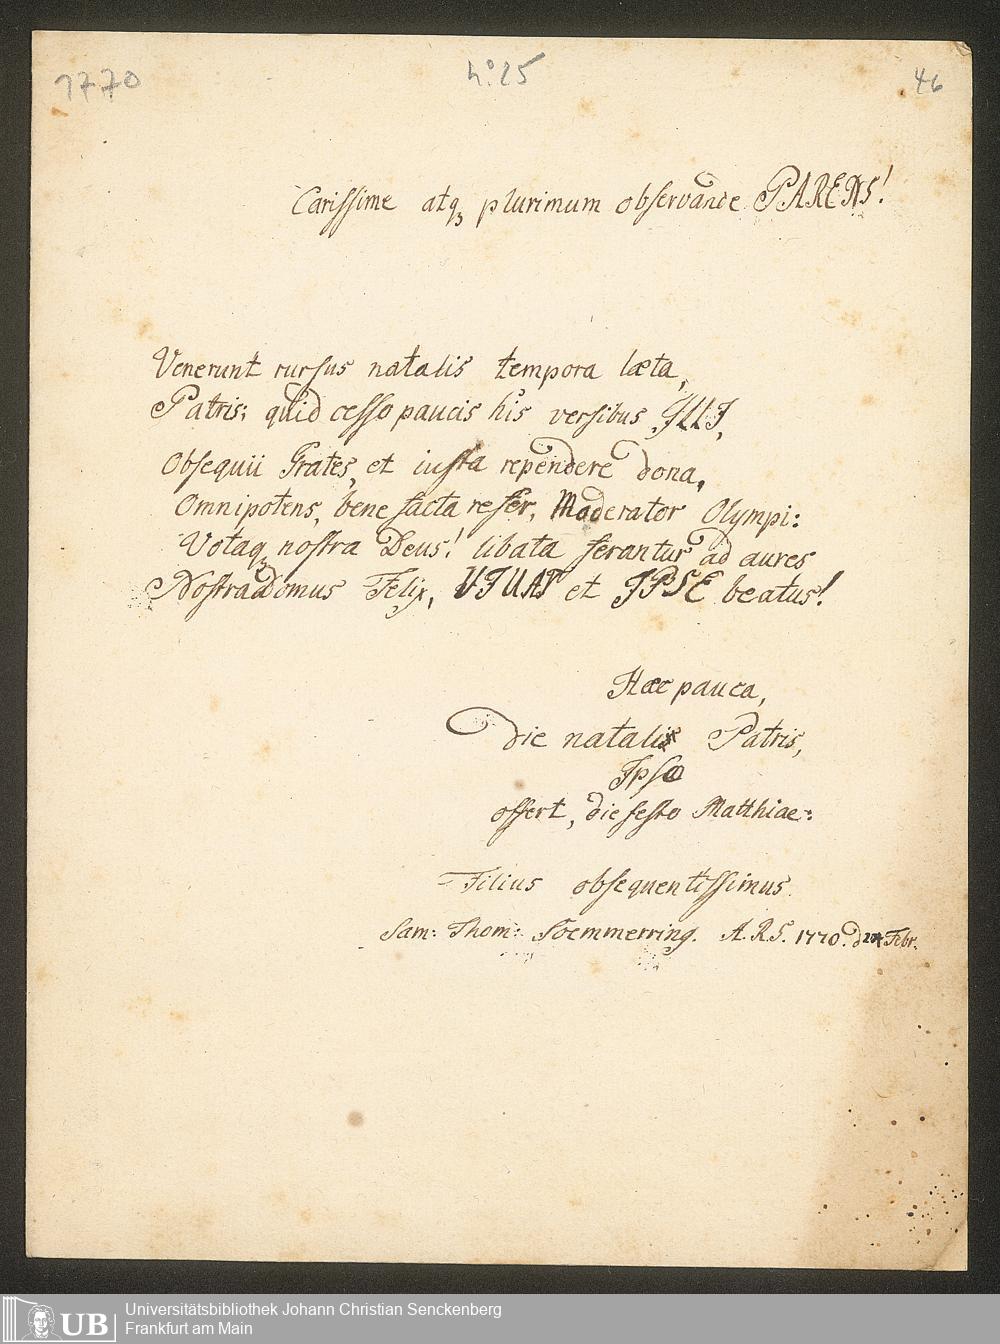 1770 no 25 46
Carissime atq3 plurimum observande PARENS!
Venerunt rursus natalis tempora læta,
Patris; quid cesso paucis his versibus, ILLI,
Obsequii Grates, et iusta rependere dona,
Omnipotens, bene facta refer, Moderator Olympi:
Votaq3 nostra Deus! libata ferantur ad aures
Nostra Domus Felix, VIUAT et IPSE beatus!
Haec pauca,
die natalis Patris,
Ipso
offert, die festo Matthiae:
Filius obsequentissimus
Sam: Thom: Soemmerring. A. R. S. 1770. d 24 Febr.
UB Universitätsbibliothek Johann Christian Senckenberg
Frankfurt am Main